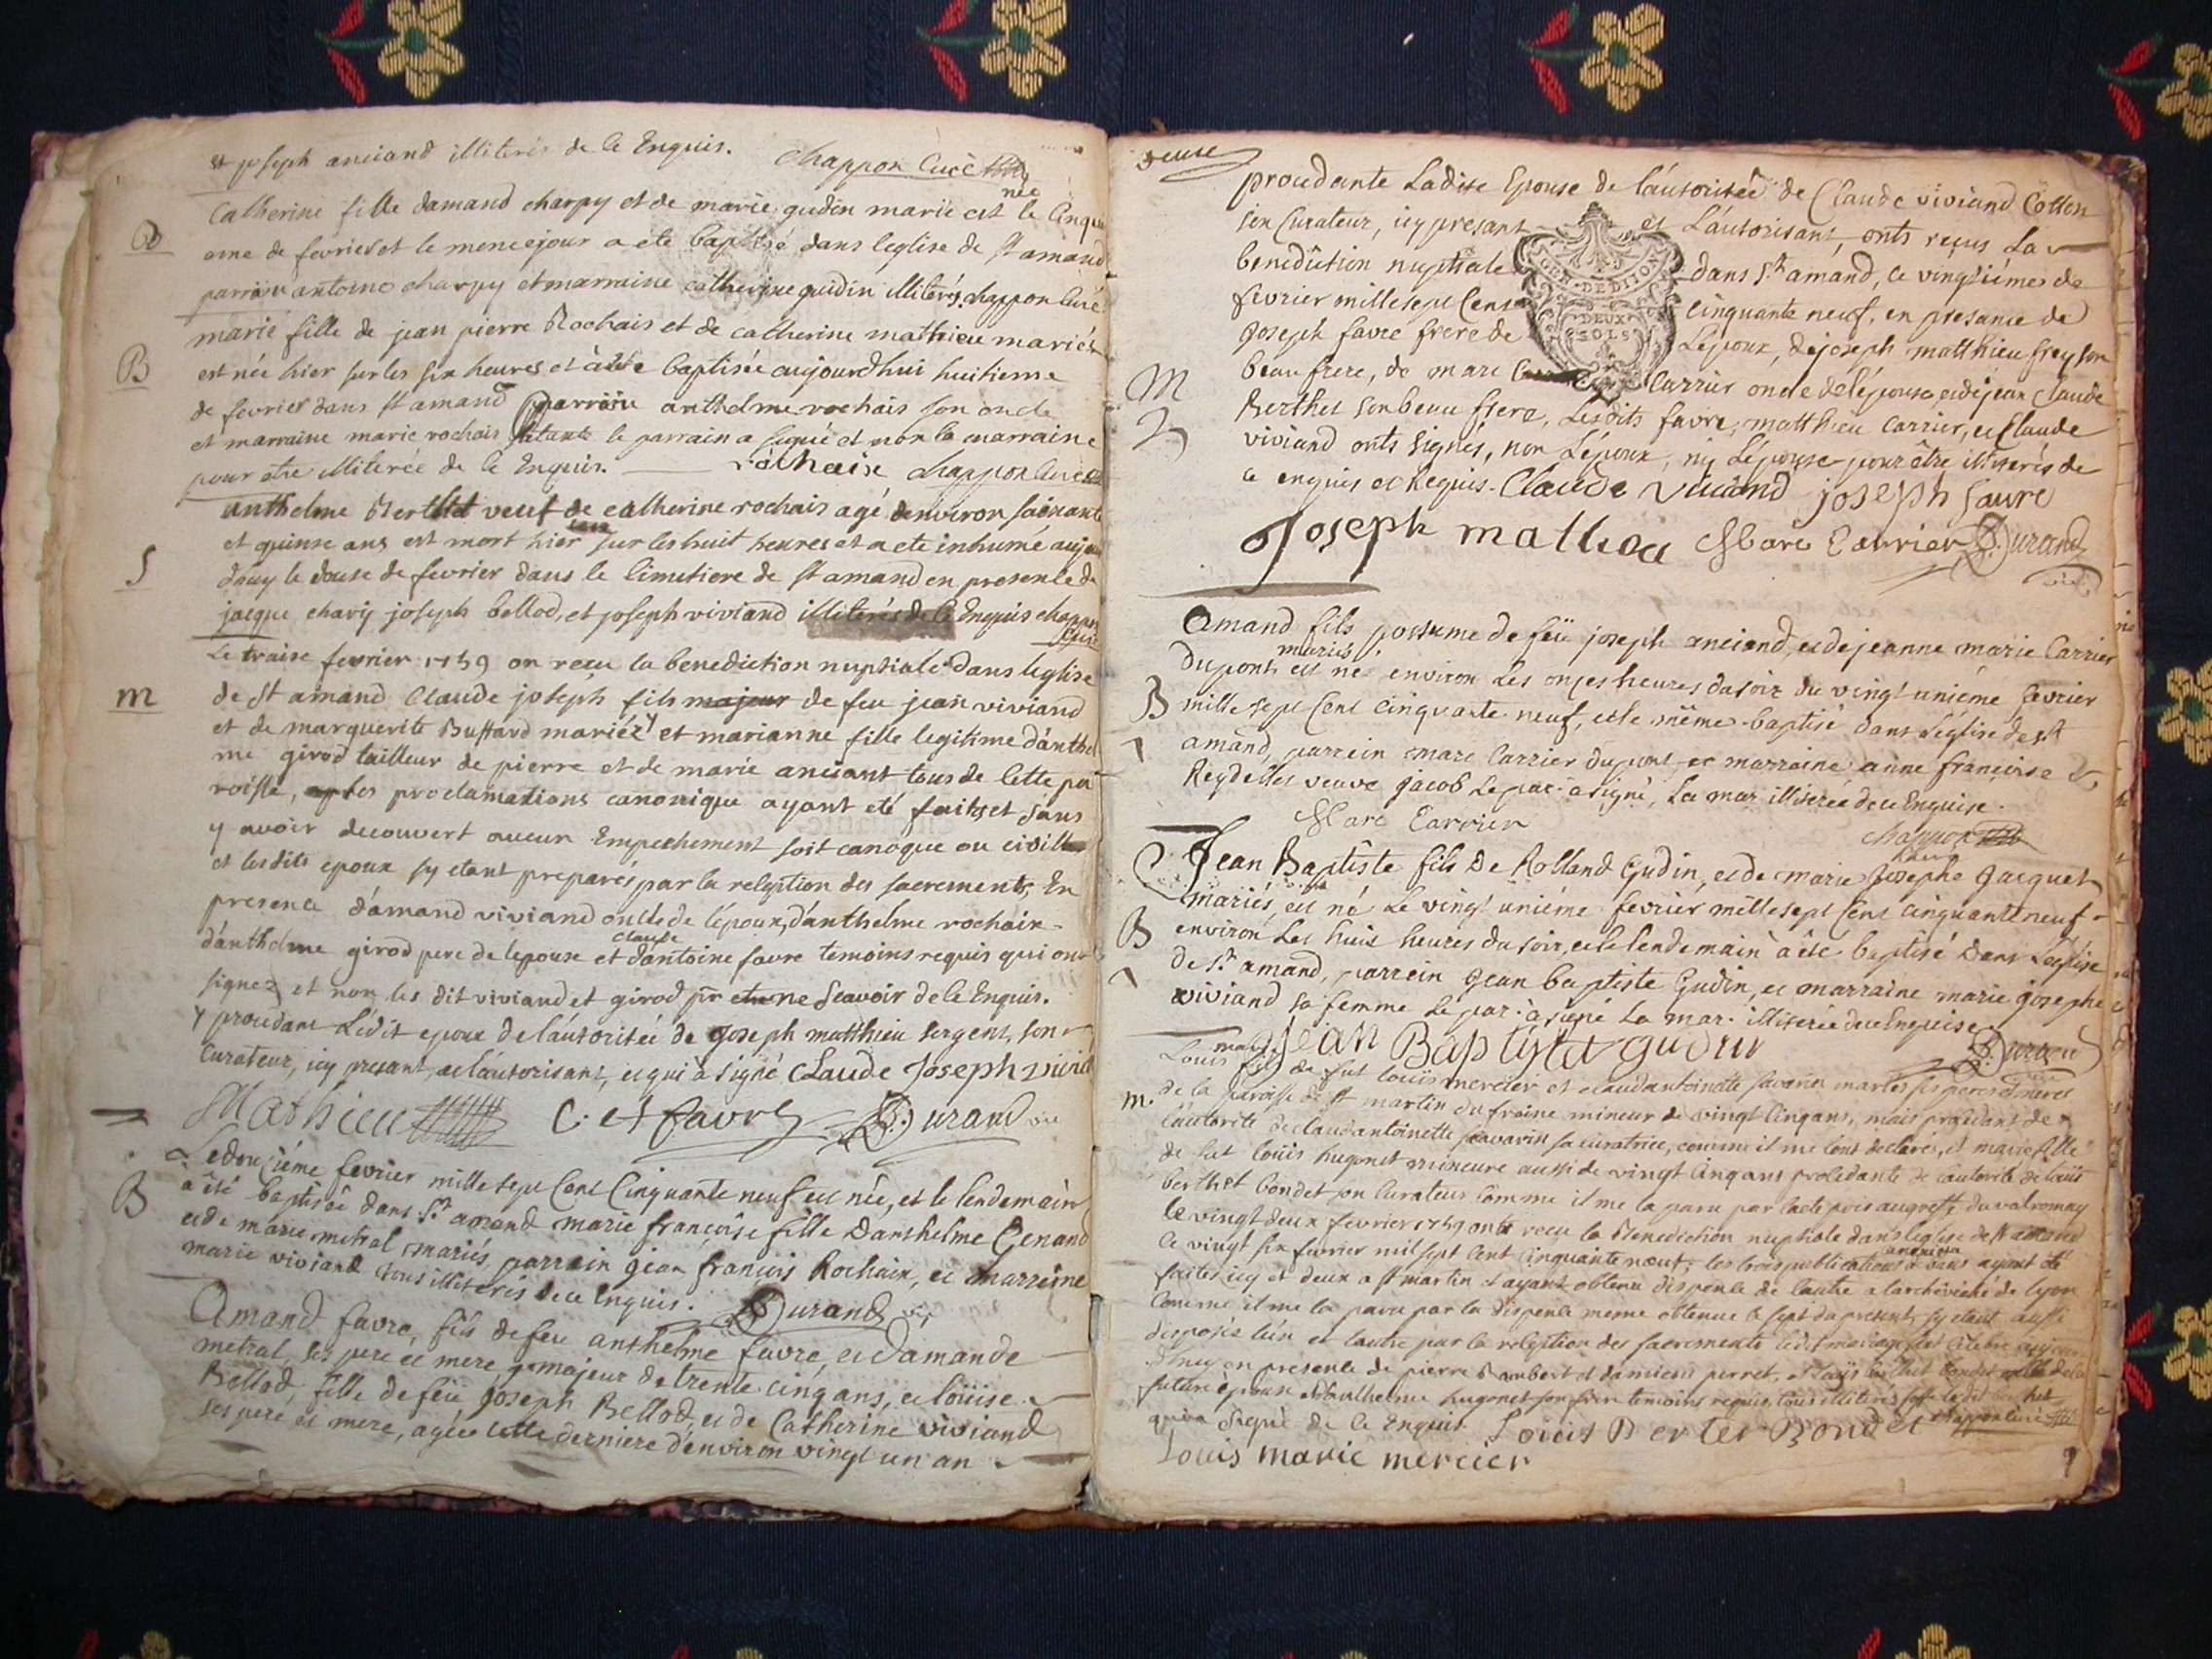 et joseph anciand illiterés de ce Enquis. Chappon Curé
née
Catherine fille damand charpy et de marie gudin marié est le Cinqui
B
eme de fevrier et le meme jour a ete baptisé dans leglise de st amand
parrain antoine charpy et marraine catherine gudin illiterés. chappon curé
marie fille de jean pierre Rochais et de catherine mathieu mariés
B
est née hier sur les six heures et à été baptisée aujourdhui huitieme
de fevrier dans st amand parrain anthelme rochais son oncle
et marraine marie rochais sa tante le parrain a signé et non la marraine
pour etre illiterée de ce Enquis. rochaix chappon curé
anthelme Berthet veuf de catherine rochais agé denviron soixante
et quinse ans est mort hier sur les huit heures et a ete inhumé aujour
S
dhuy le douse de fevrier dans le cimetiere de st amand en presence de
jacque charpy joseph bellod, et joseph viviand illiterés de ce Enquis chappon
curé
Le traise fevrier 1759 on reçu la benediction nuptiale dans leglise
m
de st amand Claude joseph fils majeur de feu jean viviand
et de marguerite Buffard mariéz et marianne fille legitime danthel
me girod tailleur de pierre et de marie anciant tous de cette pa
roisse, les proclamations canonique ayant eté faites et sans
y avoir decouvert aucun Empechement soit canoque ou civill
et les dits epoux sy etant preparés par la reception des sacrements, En
presence d'amand viviand oncle de l'époux, d'anthelme rochaix
claude
d'anthelme girod pere de lepouse et d'antoine favre temoins requis qui ont
signez et non les dit viviand et girod pr ne scavoir de ce Enquis.
y procdant Lédit epoux de láutoritée de joseph matthieu sergent, son
Curateur, icy present, et láutorisant, et qui à signé Claude Joseph viviand
Mathieu C. et favre Durand vic
Le douzième fevrier mille sept Cent Cinquante neuf est née, et le lendemain
B
a été baptisée dans St amand marie françoise fille Danthelme Genand
et de marie metral mariés, parrein jean françois Rochaix, et marreine
marie viviand tous illiterés de ce Enquis. Durand vic
Amand favre, fils de feu anthelme favre, et damande
metral ses pere et mere, majeur de trente cinq ans, et loüise
Bellod, fille de feu joseph Bellod, et de Catherine viviand
ses pere et mere, agée cette derniere d'environ vingt un an
procdante Ladite Epouse de láutoritée de Claude viviand Cotton
son Curateur, icy presant et L'áutorisant, onts reçus La
GEN. DE DIJON
DEUX
SOLS
benediction nuptiale dans St amand, ce vingtiémes de
fevrier mille sept Cens cinquante neuf, en presance de
joseph favre frere de L'époux, de joseph matthieu frey son
M
beau frere, de marc Carrier oncle de l'épouse, et de jean Claude
Berthet son beau frere, Lesdits favre, matthieu carrier, et Claude
viviand onts signés, non L'époux, ny L'épouse pour être illiterés de
ce enquis et Requis. Claude viuiand joseph faure
Joseph mathieu Marc Carrier Durand
vic
Amand fils possume de feü joseph anciand, et de jeanne marie Carrier
mariés
Dupont est né environ Les onzes heures du soir du vingt uniéme fevrier
B
mille sept Cent cinquante neuf, et le même baptisé dans L'église de St
amand, parrein marc Carrier dupont, et marraine anne francoise
Reydellet veuve jacob Le par. à signé, La mar illiterée de ce Enquise.
Marc Carrier chappon
Jean Baptiste fils De Rolland Gudin, et de marie Josephe Jacquet
mariés, est né Le vingt uniéme fevrier mille sept Cent cinquante neuf
B
environ Les huit heures du soir, et le lendemain à été baptisé Dans L'église
de St amand, parrein Jean baptiste Gudin, et marraine marie josephe
viviand sa femme Le par. à signé La mar. illiterée de ce Enquise.
Jean Baptiste gudin Durand
Louis fils de fut louis mercier et claudantoinette savarin mariés ses peres et meres
m.
de la paroisse de st martin du fraine mineur de vingt Cinq ans, mais procedant de
l'autorité de claudantoinette savarin sa curatrice, comme il me l'ont declaré, et marie fille
de fut loüis hugonet mineure aussi de vingt Cinq ans procedante de l'autorité de loüis
berthet bondet son Curateur comme il me la paru par lacte au greffe du valromay
le vingt deux fevrier 1759 onts recu la Benediction nuptiale dans leglise de st amand
Ce vingt six fevrier mil sept Cent Cinquante neuf; les trois publications ayant été
faites icy et deux a st martin et ayant obtenu dispense de lautre a larcheveché de lyon
Comme il me la paru par la dispense meme obtenue le sept du present, sy etant aussi
disposés l'un et lautre par la reception des sacrements
en presence de pierre et damien perret, et
future épouse hugonet son frere temoins requis tous illiterés
qui a signé de ce Enquis Louis Bertet Bondet chappon curé
Louis marie mercier